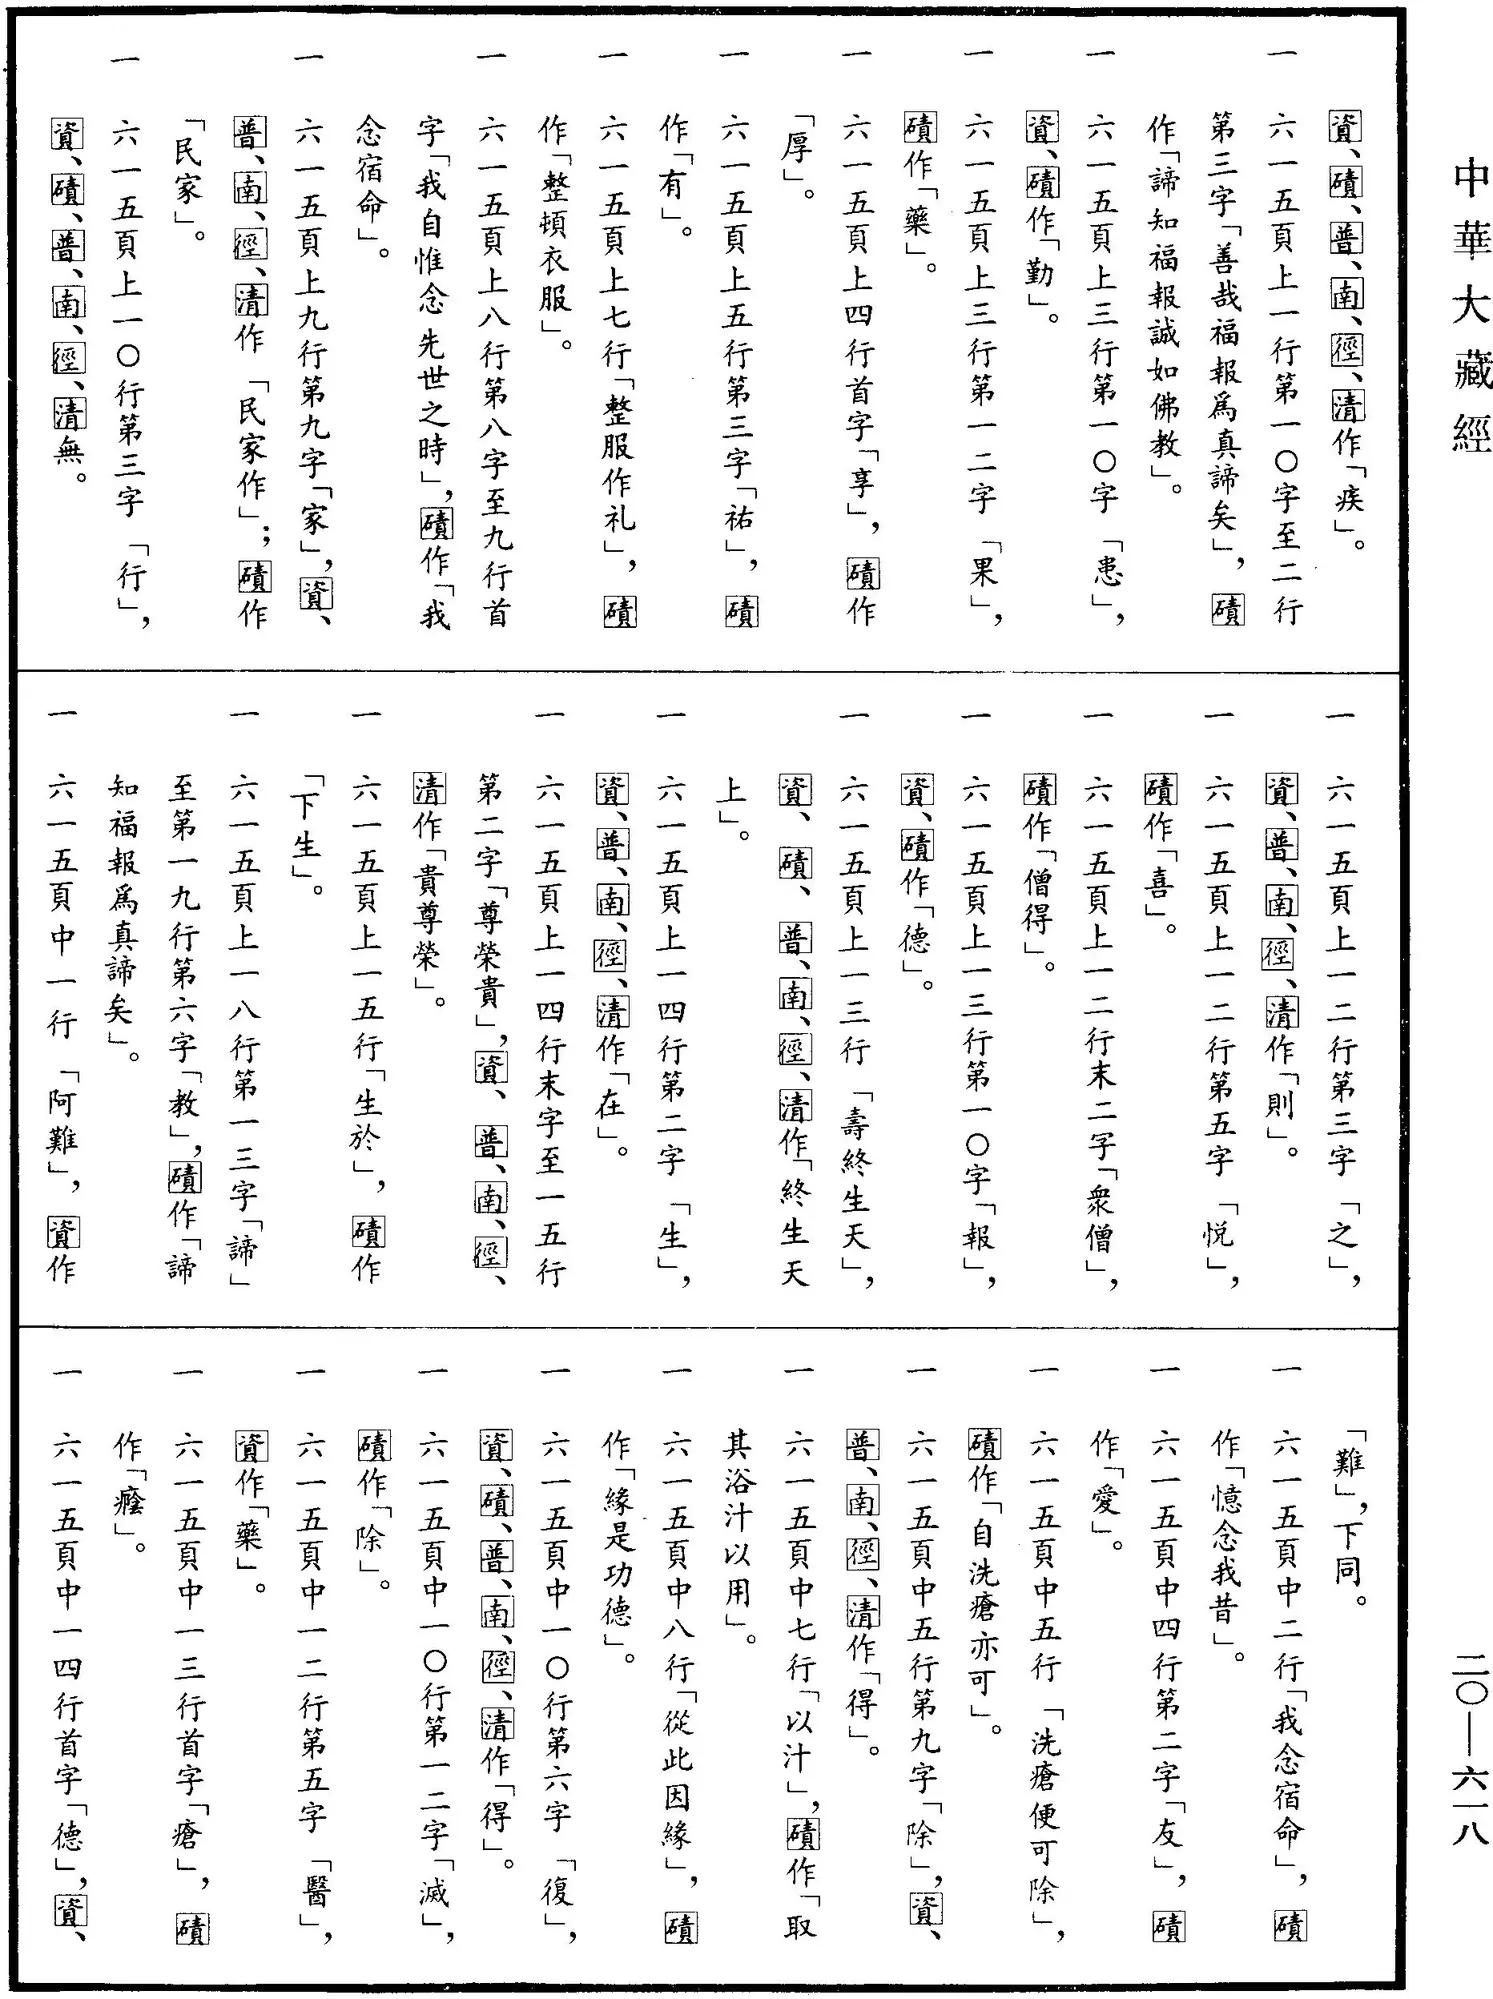 中華大藏經
資、磧、普、南、徑、清作「疾」。
一 六一五頁上一行第一〇字至二行
第三字「善哉福報爲真諦矣」，磧
作「諦知福報誠如佛教」。
一 六一五頁上三行第一〇字「恚」，
資、磧作「勤」。
一 六一五頁上三行第一二字「果」，
磧作「藥」。
一 六一五頁上四行首字「享」，磧作
「厚」。
一 六一五頁上五行第三字「祐」，磧
作「有」。
一 六一五頁上七行「整服作礼」，磧
作「整頓衣服」。
一 六一五頁上八行第八字至九行首
字「我自惟念先世之時」，磧作「我
念宿命」。
一 六一五頁上九行第九字「家」，資、
普、南、徑、清作「民家作」；磧作
「民家」。
一 六一五頁上一〇行第三字「行」，
資、磧、普、南、徑、清無。
一 六一五頁上一二行第三字「之」，
資、普、南、徑、清作「則」。
一 六一五頁上一二行第五字「悦」，
磧作「喜」。
一 六一五頁上一二行末二字「衆僧」，
磧作「僧得」。
一 六一五頁上一三行第一〇字「報」，
資、磧作「德」。
一 六一五頁上一三行「壽終生天」，
資、磧、普、南、徑、清作「終生天
上」。
一 六一五頁上一四行第二字「生」，
資、普、南、徑、清作「在」。
一 六一五頁上一四行末字至一五行
第二字「尊榮貴」，資、普、南、徑、
清作「貴尊榮」。
一 六一五頁上一五行「生於」，磧作
「下生」。
一 六一五頁上一八行第一三字「諦」
至第一九行第六字「教」，磧作「諦
知福報爲真諦矣」。
一 六一五頁中一行「阿難」，資作
「難」，下同。
一 六一五頁中二行「我念宿命」，磧
作「憶念我昔」。
一 六一五頁中四行第二字「友」，磧
作「愛」。
一 六一五頁中五行「洗瘡便可除」，
磧作「自洗瘡亦可」。
一 六一五頁中五行第九字「除」，資、
普、南、徑、清作「得」。
一 六一五頁中七行「以汁」，磧作「取
其浴汁以用」。
一 六一五頁中八行「從此因緣」，磧
作「緣是功德」。
一 六一五頁中一〇行第六字「復」，
資、磧、普、南、徑、清作「得」。
一 六一五頁中一〇行第一二字「滅」，
磧作「除」。
一 六一五頁中一二行第五字「醫」，
資作「藥」。
一 六一五頁中一三行首字「瘡」，磧
作「癊」。
一 六一五頁中一四行首字「德」，資、
二〇—六一八